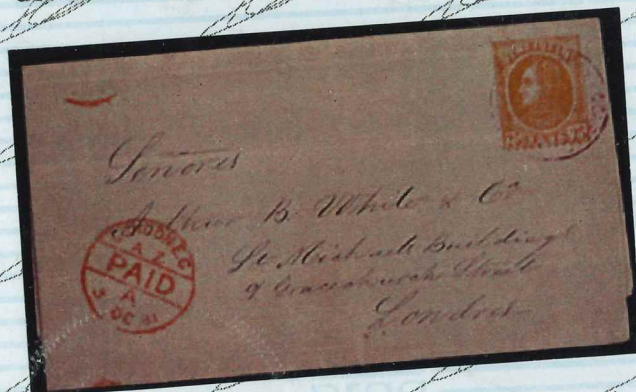 Señores
Arthur B. White & Co
St Michaels Buildings
9 Gracechurch Street
Londres
LONDON E.C
A Z
PAID
A
OC 81